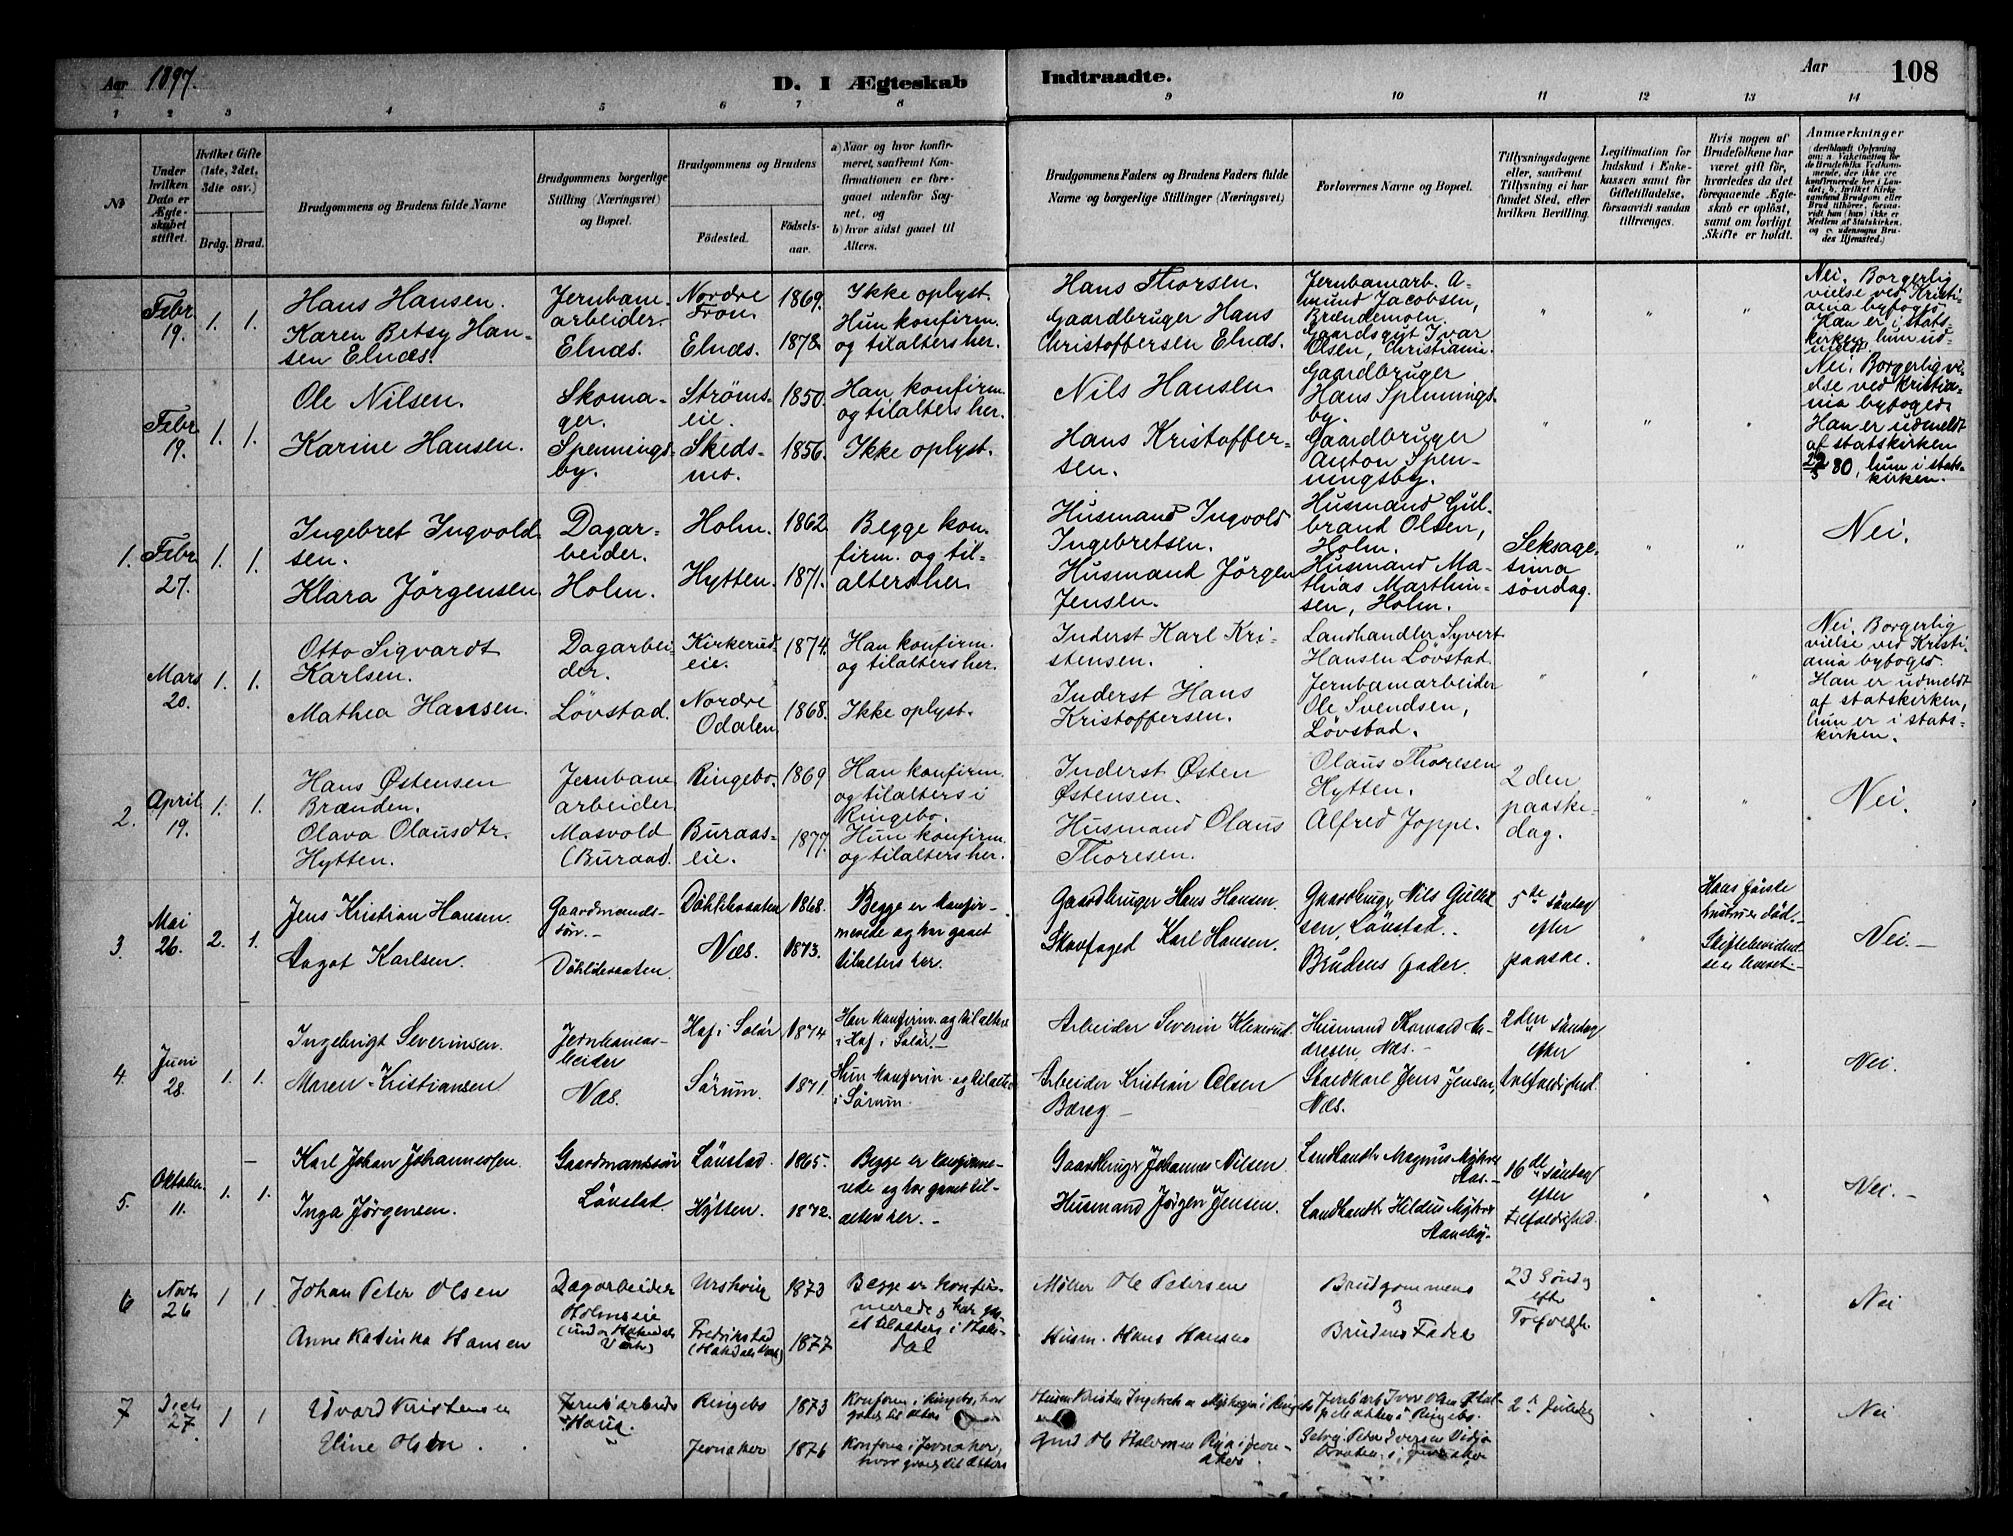 Aar 1897.
D. I Ægteskab Indtraadte.
Aar 108
1 2 3 4 5 6 7 8 9 10 11 12 13 14
No
Under hvilken Dato er Ægteskabet stiftet.
Hvilket Gifte (1ste, 2det, 3die osv.)
Brdg. Brud.
Brudgommens og Brudens fulde Navne
Brudgommens borgerlige Stilling (Næringsvei) og Bopæl.
Brudgommens og Brudens
Fødested.
Fødsels-aar.
a) Naar og hvor konfirmeret, saafremt Konfirmationen er foregaaet udenfor Sognet, og
b) hvor sidst gaaet til Alters.
Brudgommens Faders og Brudens Faders fulde Navne og borgerlige Stillinger (Næringsvei)
Forlovernes Navne og Bopæl.
Tillysningsdagene eller, saafremt Tillysning ei har fundet Sted, efter hvilken Bevilling.
Legitimation for Indskud i Enkekassen samt for Giftetilladelse, forsaavidt saadan tiltrænges.
Hvis nogen af Brudefolkene har været gift før, hvorledes da det foregaaende Ægteskab er opløst, samt om lovligt Skifte er holdt.
Anmærkninger
(deriblandt Oplysning om: a. Vaksination for de Brudefolks Vedkommende, der ikke ere konfirmerede her i Landet; b. hvilket Kirkesamfund Brudgom eller Brud tilhører, forsaavidt han (hun) ikke er Medlem af Statskirken, og c. udensogns Brudes Hjemsted.)
Febr. 19. 1. 1.
Hans Hansen.
Karen Betsy Hansen Elnæs
Jernbanearbeider. Elnæs.
Nordre Fron. 1869.
Elnæs. 1878.
Ikke oplyst.
Hun konfirm. og tilalters her.
Hans Thorsen.
Gaardbruger Hans Christoffersen Elnæs.
Jernbanarb. Amund Jacobsen, Brændemoen.
Gaardsgut Ivar Olsen, Christiania.
" " "
Nei. Borgerlig vielse ved Kristiania byfoged. Han er i statskirken, hun udmeldt.
Febr 19. 1. 1.
Ole Nilsen.
Karine Hansen.
Skomager. Spenningsby.
Strømseie. 1850.
Skedsmo. 1856.
Han konfirm. og tilalters her.
Ikke oplyst.
Nils Hansen
Hans Kristoffersen.
Gaardbruger Hans Spenningsby.
Gaardbruger Anton Spenningsby.
" " "
Nei. Borgerlig vielse ved Kristiania byfoged. Han er udmeldt af statskirken 80, hun i statskirken.
1. Febr 27. 1. 1.
Ingebret Ingvoldsen.
Klara Jørgensen
Dagarbeider. Holm.
Holm. 1862
Hytten. 1871.
Begge konfirm. og tilalters her
Husmand Ingvold Ingebretsen.
Husmand Jørgen Jensen.
Husmand Gulbrand Olsen, Holm.
Husmand Mathias Marthinsen, Holm.
Seksagesima søndag.
" "
Nei.
Mars 20. 1. 1.
Otto Sigvardt Karlsen.
Mathea Hansen.
Dagarbeider. Løvstad.
Kirkerudeie. 1874.
Nordre Odalen 1868.
Han konfirm. og tilalters her.
Ikke oplyst.
Inderst Karl Kristensen.
Inderst Hans Kristoffersen.
Landhandler Syvert Hansen Løvstad.
Jernbanarbeider Ole Svendsen, Løvstad.
" " "
Nei. Borgerlig vielse ved Kristiania byfoged. Han er udmeldt af statskirken, hun er i statskirken.
2. April 19. 1. 1.
Hans Østensen Brænden.
Olava Olausdtr. Hytten.
Jernbanearbeider. Masvold (Buraas.
Ringebo. 1869
Buraaseie. 1877.
Han konfirm. og tilalters i Ringebo.
Hun konfirm. og tilalters her.
Inderst Østen Østensen.
Husmand Olaus Thoresen.
Olaus Thoresen Hytten.
Alfred Joppe.
2den paaskedag.
" "
Nei.
3. Mai 26. 2. 1.
Jens Kristian Hansen.
Aagot Karlsen.
Gaardmandssøn.
1868.
Næs. 1873.
Begge er konfirmerede og har gaaet tilalters her.
Gaardbruger Hans Hansen.
Skovfoged Karl Hansen.
Gaardbrug. Nils Gulliksen, Løvstad.
Brudens Fader.
5te søndag efter paaske.
"
Hans første hustru er død.
Nei.
4. Juni 28. 1. 1.
Ingebrigt Severinsen.
Maren Kristiansen
Jernbanearbeider Næs.
Hof i Solør 1874
Sørum. 1871.
Han konfirm. og tilalters i Hof i Solør.
Hun konfirm. og tilalters i Sørum.
Arbeider Severin
Arbeider Kristian Olsen Bareg
Husmand Thorvald Andresen, Næs.
Staldkarl Jens Jensen, Næs.
2den søndag efter trefoldighed.
Nei.
5. Oktober 11. 1. 1.
Karl Johan Johannessen.
Inga Jørgensen.
Gaardmandssøn Løvstad.
Løvstad. 1865.
Hytten. 1872.
Begge er konfirmerede og har gaaet tilalters her.
Gaardbruger Johannes Nilsen
Husmand Jørgen Jensen.
Landhandl. Magnus Myhrer Aas.
Landhandl. Hildus Myhrer Aaneby.
16de søndag efter trefoldighed.
" "
Nei.
6 Novb 26 1 1
Johan Peter Olsen
Anne Katinka Hansen
Dagarbeider Holmseie (under Hakedals Værk)
Urskoug 1873
Fredrikstad (Hakedals Værk) 1877
Begge er konfirmerede og har gaaet tilalters i Hakedal
Møller Ole Petersen
Husm. Hans Hansen
Brudgommens og Brudens Fader
23 Søndag efter Trefoldigh.
Nei
7 Decb 27. 1 1
Edvard Kristensen
Eline Olsen
Jernb.arbeider
Ringebo 1873
Jevnaker 1876
Konform. i Ringebo, hvor
Konform i Jevnaker, hvor gaaet til Alters
Husm. Kristen
2d Juledag
Nei